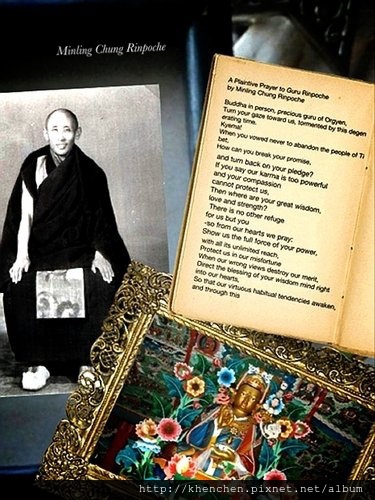 Minling Chung Rinpoche
A Plaintive Prayer to Guru Rinpoche
by Minling Chung Rinpoche
Buddha in person, precious guru of Orgyen,
Turn your gaze toward us, tormented by this degen
erating time.
Kyema!
When you vowed never to abandon the people of Ti
bet,
How can you break your promise,
and turn back on your pledge?
If you say our karma is too powerful
and your compassion
cannot protect us,
Then where are your great wisdom,
love and strength?
There is no other refuge
for us but you
-so from our hearts we pray:
Show us the full force of your power,
with all its unlimited reach,
Protect us in our misfortune
When our wrong views destroy our merit,
Direct the blessing of your wisdom mind right
into our hearts,
So that our virtuous habitual tendencies awaken,
and through this
http://khenchen.pixnet.net/album